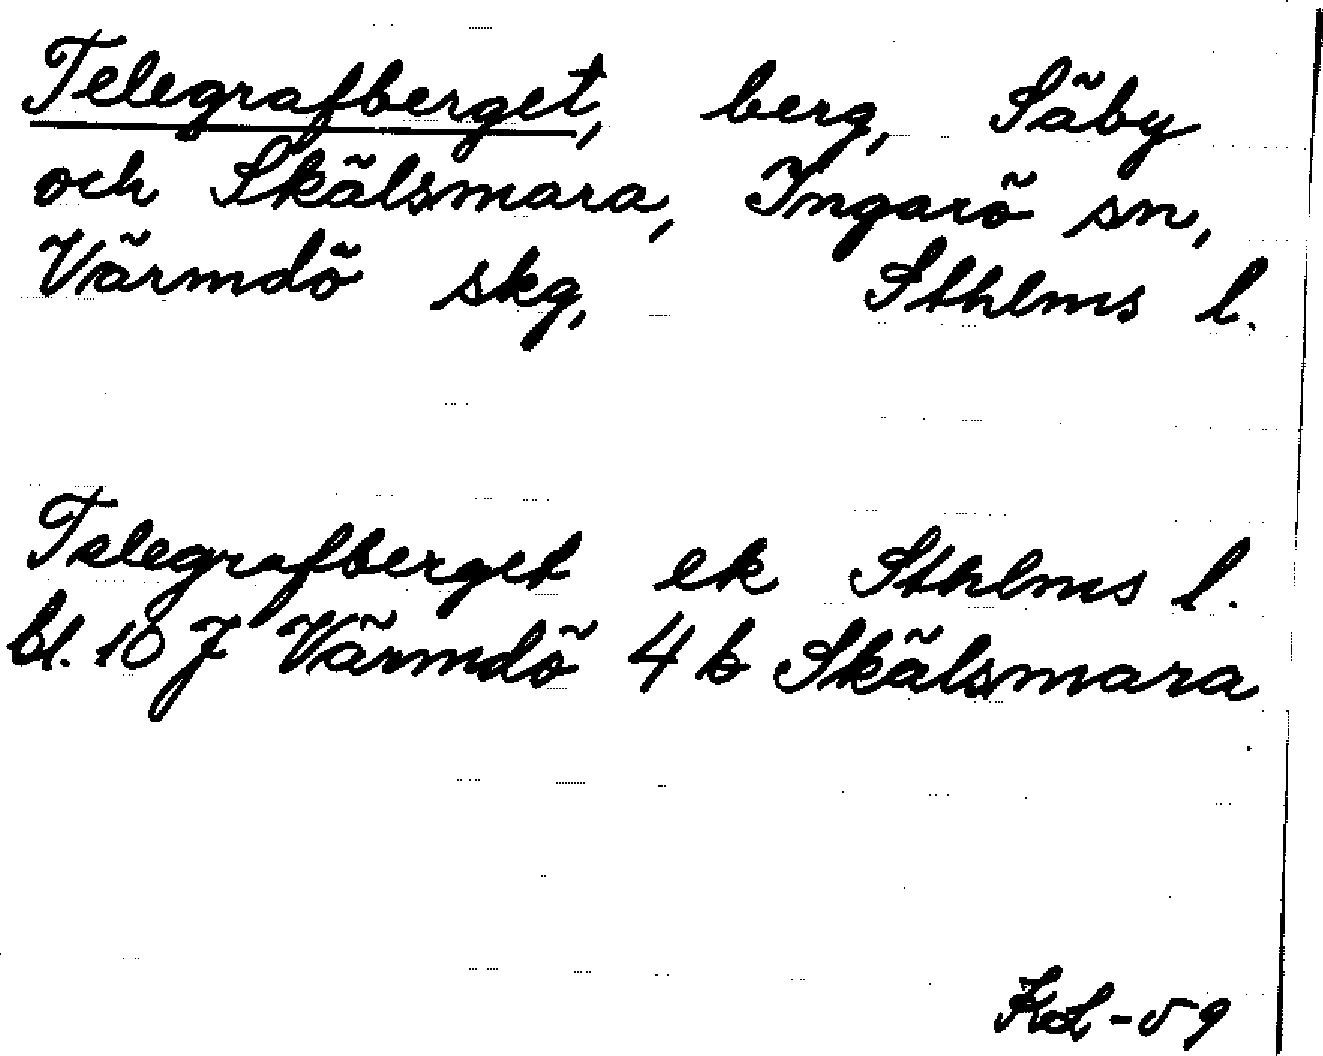 Telegrafberget, berg, Säby
och Skälsmara, Ingarö sn,
Värmdö skg, Sthlms l.
Telegrafberget ek Sthlms l.
bl. 10 J Värmdö 4 b Skälsmara
-59